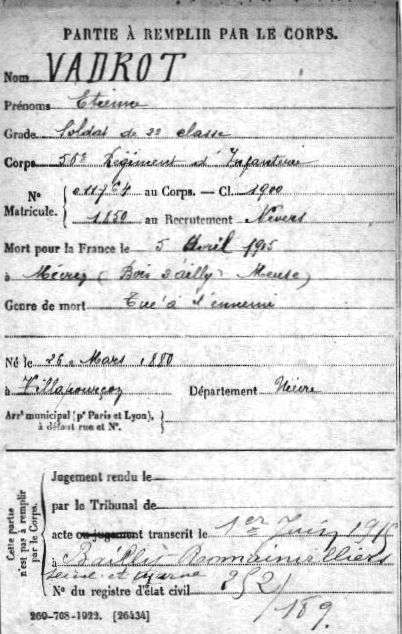 PARTIE À REMPLIR PAR LE CORPS.
Nom VADROT
Prénoms Etienne
Grade Soldat de 2e classe
Corps 56e Régiment d'Infanterie
N° Matricule. { 011764 au Corps. — Cl. 1900
1850 au Recrutement Nevers
Mort pour la France le 5 Avril 1915
à Mécrin (Bois d'ailly) Meuse)
Genre de mort Tué à l'ennemi
Né le 26 Mars 1880
à Villapourçon Département Nièvre
Arrt municipal (pr Paris et Lyon), à défaut rue et N°. }
Cette partie n'est pas à remplir par le Corps.
Jugement rendu le
par le Tribunal de
acte ou jugement transcrit le 1er Juin 1915
à Bailly-Romainvilliers
Seine-et-Marne
N° du registre d'état civil
/189.
260-708-1922. [26434]